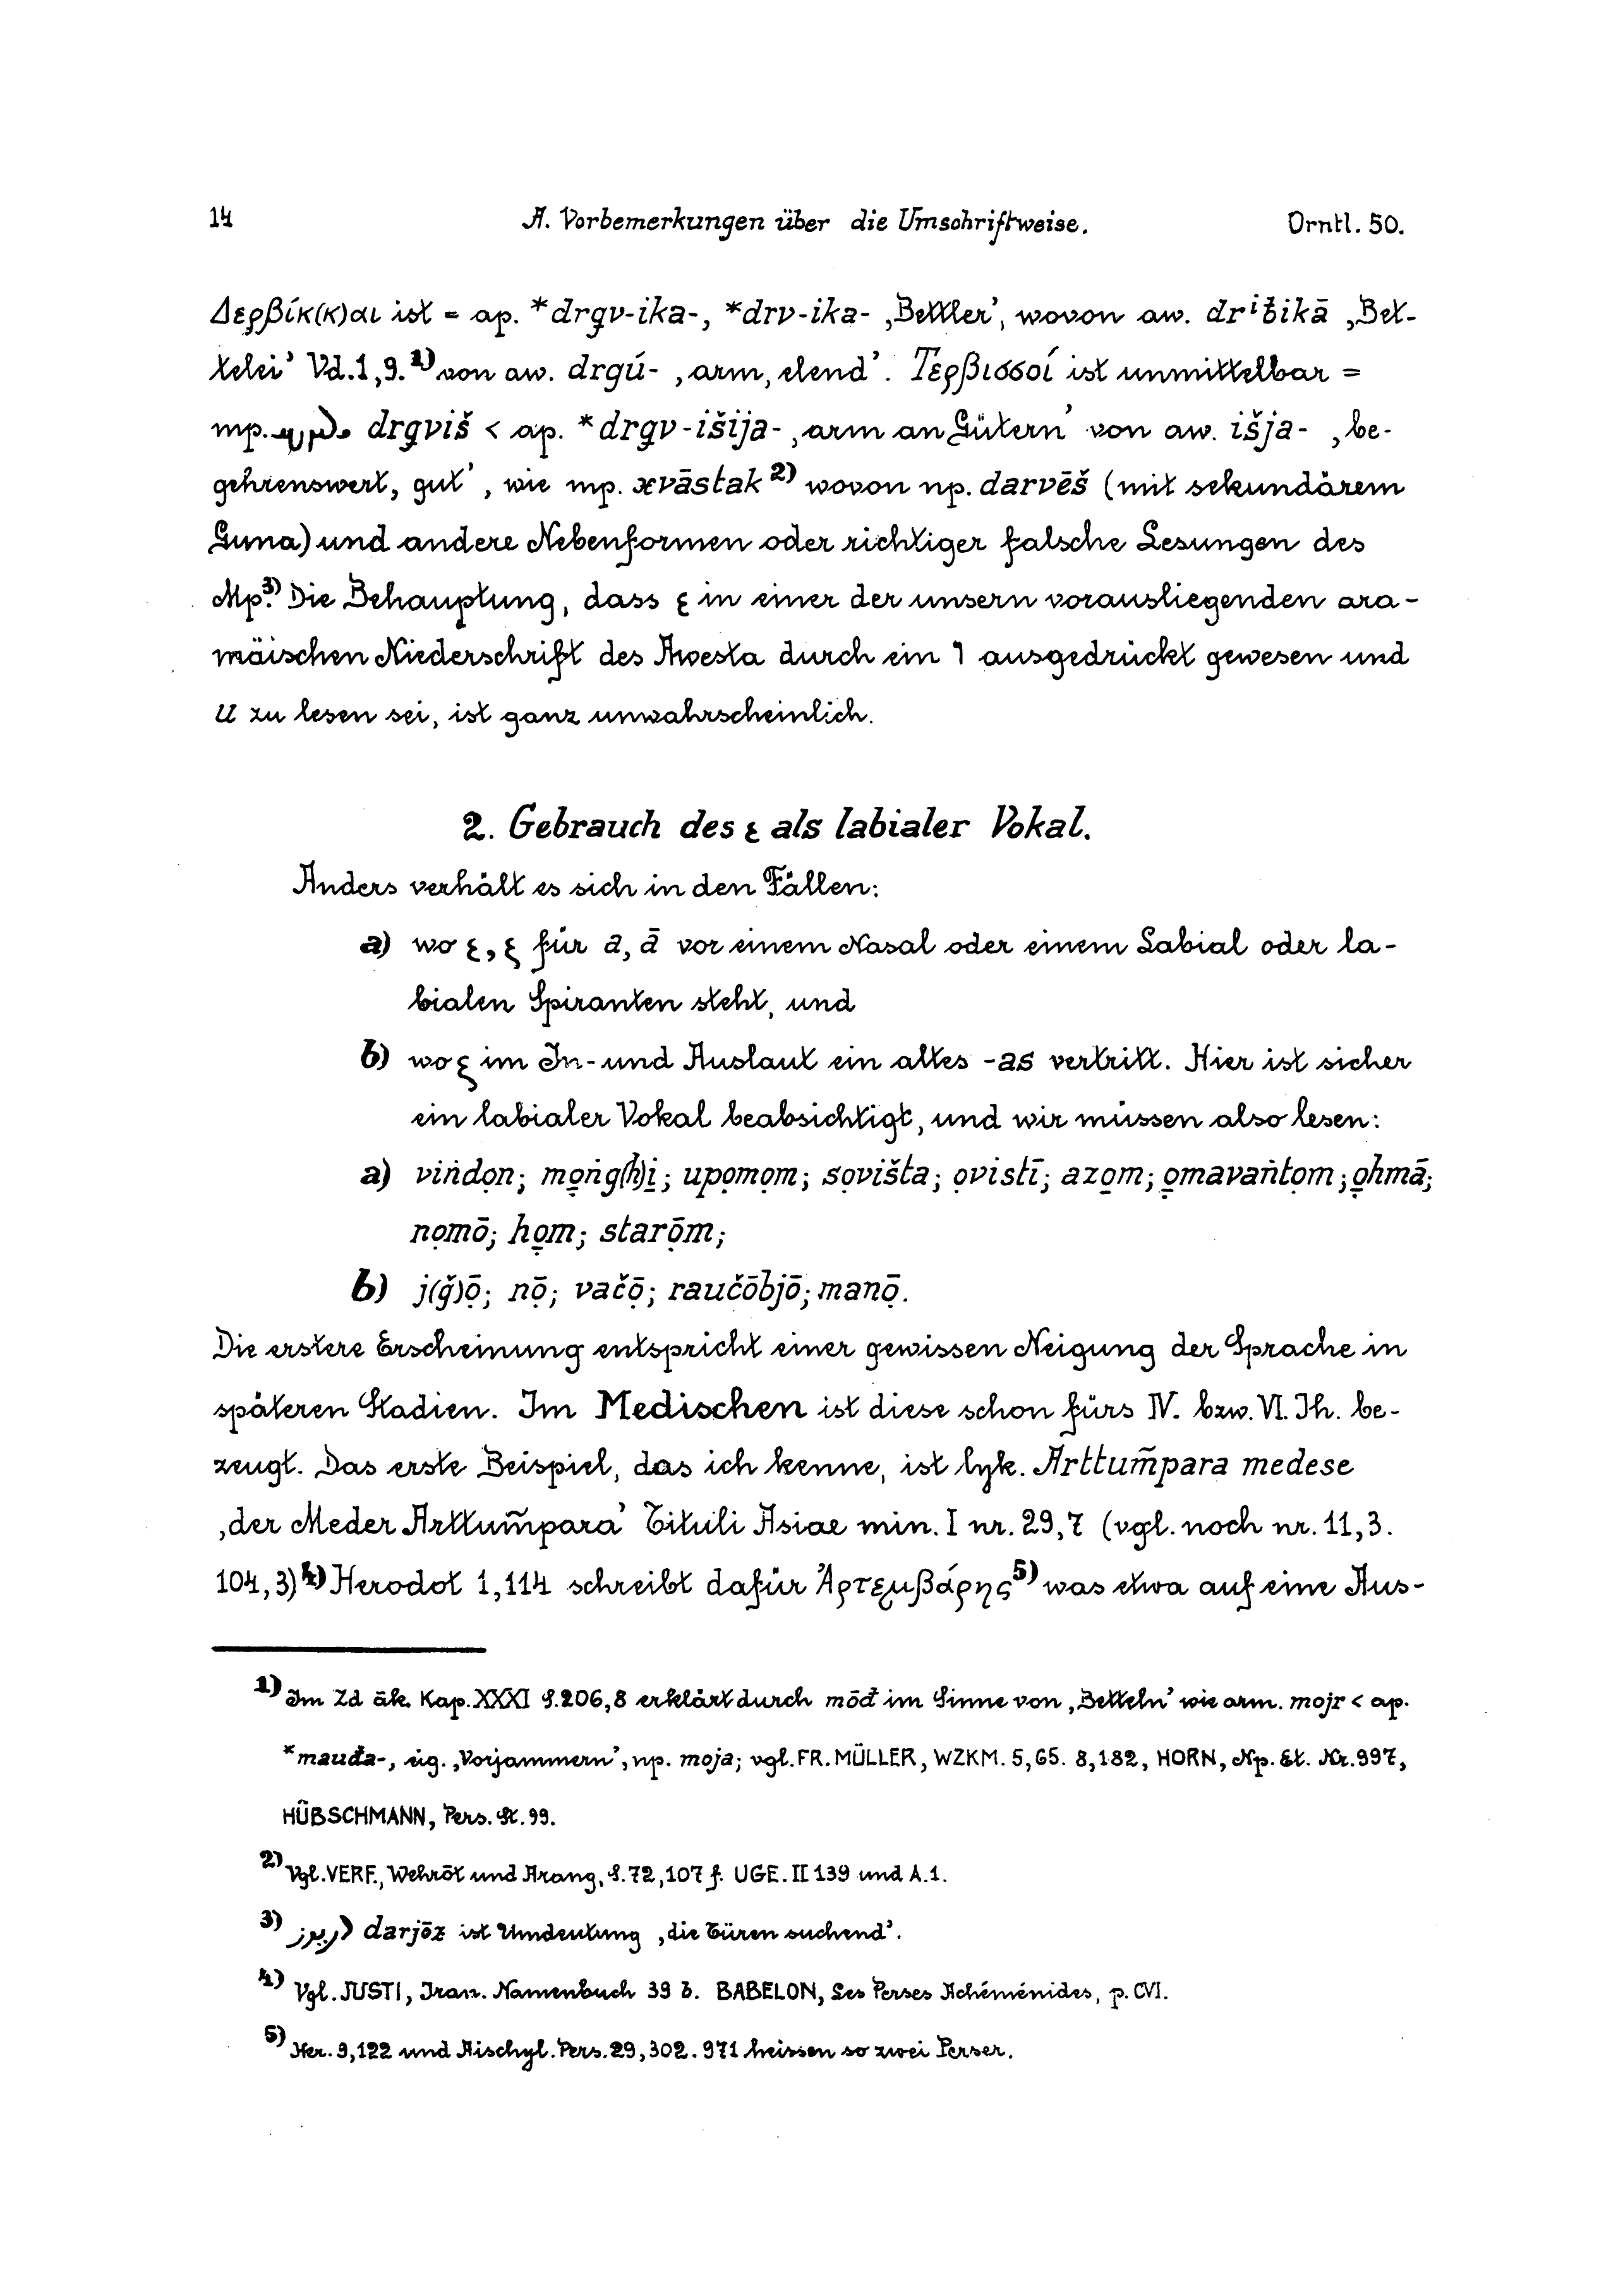 14 A. Vorbemerkungen über die Umschriftweise. Orntl. 50.
Δερβίκ(κ)αι ist = ap. *drgv-ika-, *drv-ika- ‚Bettler’, wovon aw. drⁱƀikā ‚Bet-
telei’ Vd. 1,9.¹⁾ von aw. drgú- ‚arm, elend’. Τερβισσοί ist unmittelbar =
mp. drgviš < ap. *drgv-išija- ‚arm an Gütern’ von aw. išja- ‚be-
gehrenswert, gut’, wie mp. xvāstak²⁾ wovon np. darvēš (mit sekundärem
Guna) und andere Nebenformen oder richtiger falsche Lesungen des
Mp.³⁾ Die Behauptung, dass ε in einer der unsern vorausliegenden ara-
mäischen Niederschrift des Awesta durch ein ו ausgedrückt gewesen und
u zu lesen sei, ist ganz unwahrscheinlich.
2. Gebrauch des ε als labialer Vokal.
Anders verhält es sich in den Fällen:
a) wo ε, ξ für a, ā vor einem Nasal oder einem Labial oder la-
bialen Spiranten steht, und
b) wo ξ im In- und Auslaut ein altes -as vertritt. Hier ist sicher
ein labialer Vokal beabsichtigt, und wir müssen also lesen:
a) viṅdọn; mọ̱ṅg(h)i̱; upọmọm; sọvišta; ọvistī; azo̱m; ọ̱mavaṅtọm; ọ̱hmā;
nọmō; họ̱m; starọ̄m;
b) j(ǧ)ọ̄; nọ̄; vačọ̄; raučōbjō; manọ̄.
Die erstere Erscheinung entspricht einer gewissen Neigung der Sprache in
späteren Stadien. Im Medischen ist diese schon fürs IV. bzw. VI. Jh. be-
zeugt. Das erste Beispiel, das ich kenne, ist lyk. Arttum̃para medese
‚der Meder Arttum̃para’ Tituli Asiae min. I nr. 29,7 (vgl. noch nr. 11,3.
104,3)⁴⁾ Herodot 1,114 schreibt dafür Ἀρτεμβάρης⁵⁾ was etwa auf eine Aus-
1) Im Zd āk. Kap. XXXI S. 206,8 erklärt durch mōđ im Sinne von ‚Betteln’ wie arm. mojr < ap.
*mauđa-, eig. ‚Vorjammern’, np. moja; vgl. FR. MÜLLER, WZKM. 5,65. 8,182, HORN, Np. Et. Nr. 997,
HÜBSCHMANN, Pers. St. 99.
2) Vgl. VERF., Wehrōt und Arang, S. 72, 107 f. UGE. II 139 und A. 1.
3) دريوز darjōz ist Umdeutung ‚die Türen suchend’.
4) Vgl. JUSTI, Iran. Namenbuch 39 b. BABELON, Les Perses Achéménides, p. CVI.
5) Her. 9,122 und Aischyl. Pers. 29, 302. 971 heissen so zwei Perser.